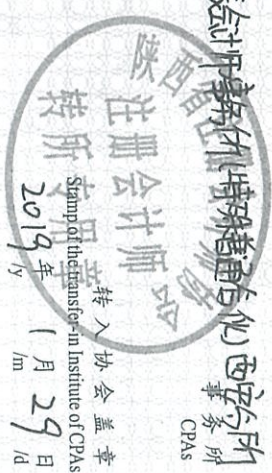 会计师事务所(特殊普通合伙)西安分所
事务所
CPAs
陕西省注册会计师协会
注册会计师
转所专用章
转入协会盖章
Stamp of the transfer-in Institute of CPAs
2019年 1月 29日
/y /m /d